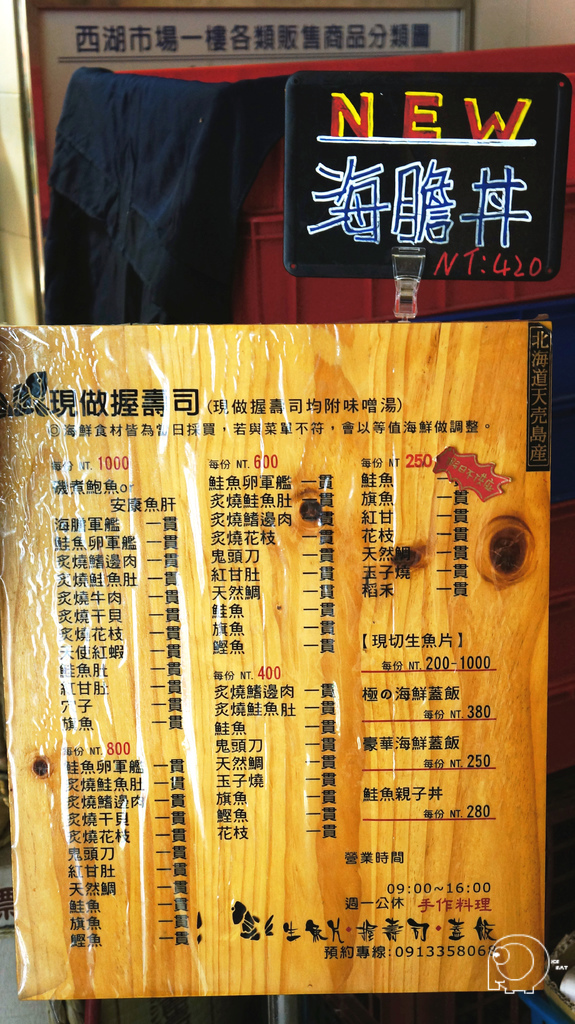 西湖市場一樓各類販售商品分類圖
NEW
海膽丼
NT:420
北海道天売島産
現做握壽司(現做握壽司均附味噌湯)
◎海鮮食材皆為當日採買，若與菜單不符，會以等值海鮮做調整。
每份 NT. 1000
磯煮鮑魚or
安康魚肝
海膽軍艦 一貫
鮭魚卵軍艦 一貫
炙燒鰭邊肉 一貫
炙燒鮭魚肚 一貫
炙燒牛肉 一貫
炙燒干貝 一貫
炙燒花枝 一貫
天使紅蝦 一貫
鮭魚肚 一貫
紅甘肚 一貫
穴子 一貫
旗魚 一貫
每份 NT. 800
鮭魚卵軍艦 一貫
炙燒鮭魚肚 一貫
炙燒鰭邊肉 一貫
炙燒干貝 一貫
炙燒花枝 一貫
鬼頭刀 一貫
紅甘肚 一貫
天然鯛 一貫
鮭魚 一貫
旗魚 一貫
鰹魚 一貫
每份 NT. 600
鮭魚卵軍艦 一貫
炙燒鮭魚肚 一貫
炙燒鰭邊肉 一貫
炙燒花枝 一貫
鬼頭刀 一貫
紅甘肚 一貫
天然鯛 一貫
鮭魚 一貫
旗魚 一貫
鰹魚 一貫
每份 NT. 400
炙燒鰭邊肉 一貫
炙燒鮭魚肚 一貫
鮭魚 一貫
鬼頭刀 一貫
天然鯛 一貫
玉子燒 一貫
旗魚 一貫
鰹魚 一貫
花枝 一貫
每份 NT 250
鮭魚 一貫
旗魚 一貫
紅甘 一貫
花枝 一貫
天然鯛 一貫
玉子燒 一貫
稻禾 一貫
【現切生魚片】
每份 NT. 200-1000
極の海鮮蓋飯
每份 NT. 380
豪華海鮮蓋飯
每份 NT. 250
鮭魚親子丼
每份 NT. 280
營業時間
09:00~16:00
週一公休 手作料理
生魚片·握壽司·蓋飯
預約專線:091335806